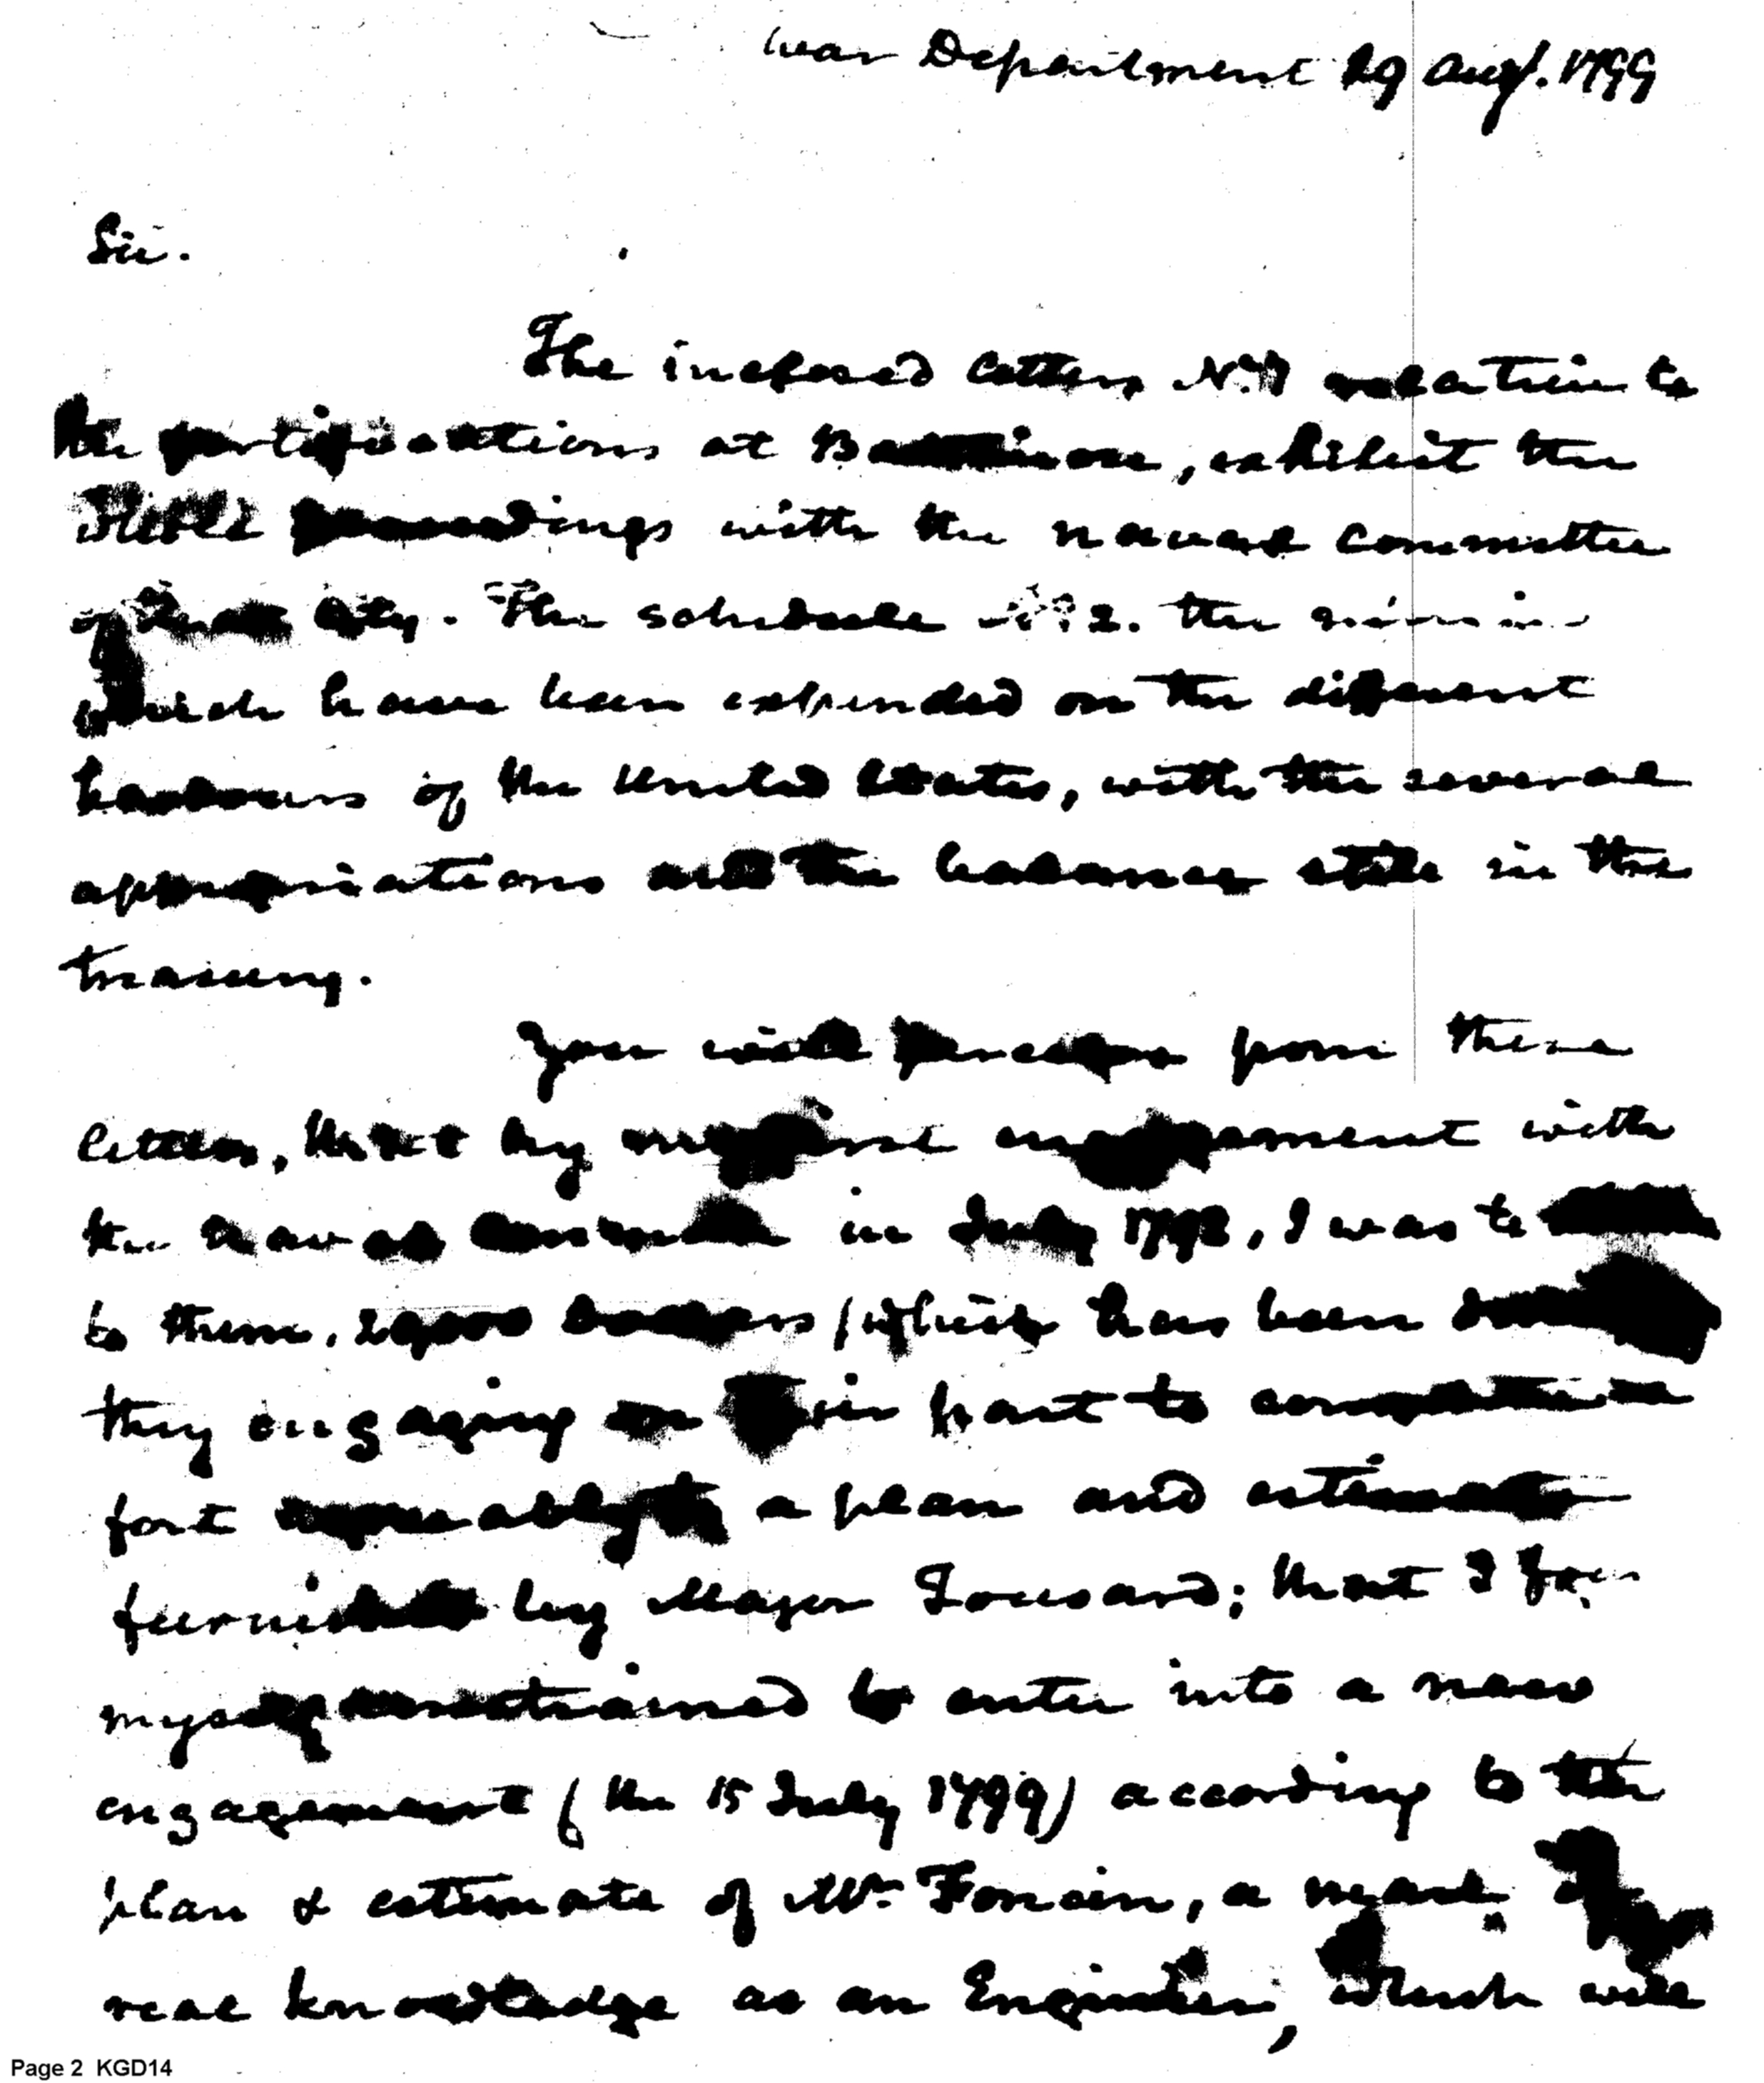 War Department 29 Augt. 1799
Sir.
The inclosed letters No. 1 relative to
the fortifications at Baltimore, exhibit the
whole proceedings with the naval committee
of that City. The schedule No. 2. the
which have been expended on the different
harbours of the United States, with the several
appropriations and the balances still in the
treasury.
You will perceive from these
letters, that by my first engagement with
the naval committee in July 1798, I was to
to them, dollars (which has been
they engaging on their part to complete the
fort agreeably to a plan and estimate
furnished by Major Tousard; that I
myself constrained to enter into a new
engagement (the 15 July 1799) according to the
plan & estimate of Mr. Foncin, a man of
real knowledge as an Engineer, which will
Page 2 KGD14